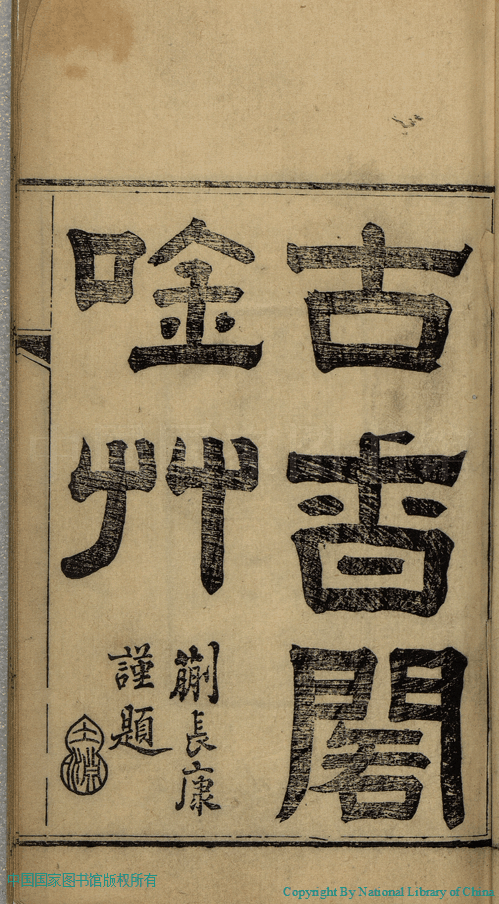 古香閣
唫艸
蒯長康
謹題
中国国家图书馆版权所有
Copyright By National Library of China